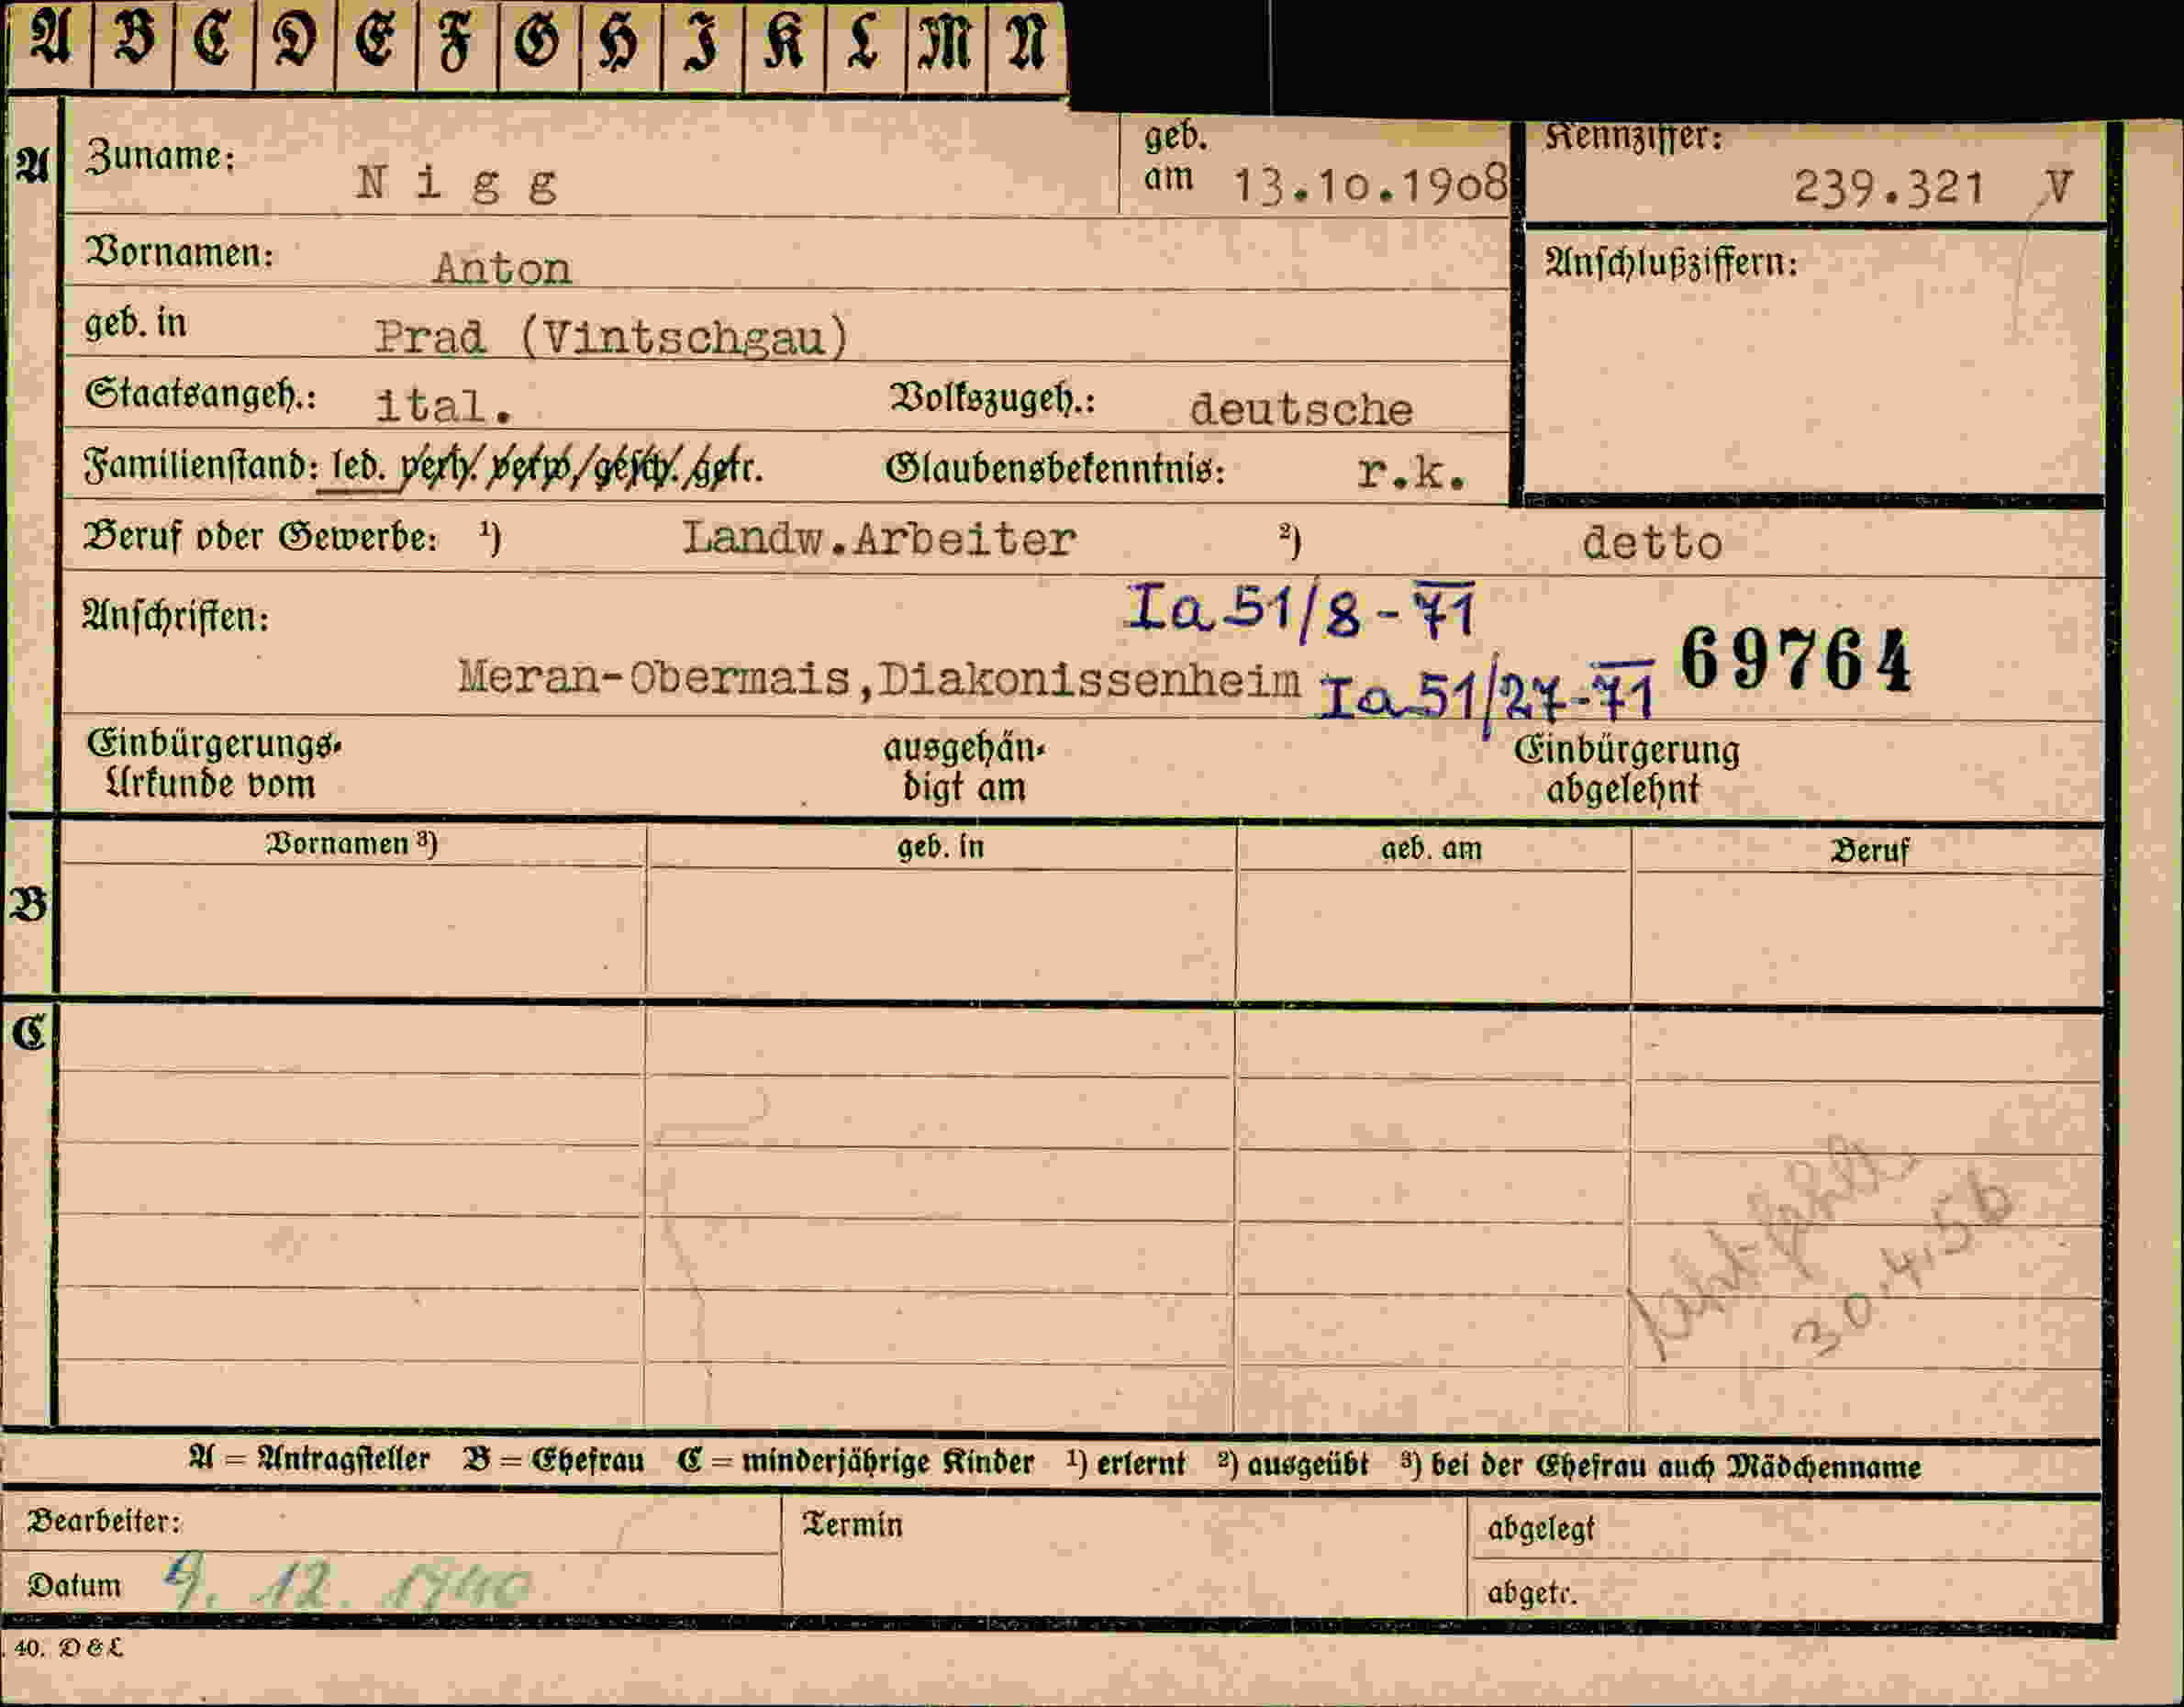 A B C D E F G H I K L M N
A Zuname: Nigg geb. am 13.10.1908 Kennziffer: 239.321 V
Vornamen: Anton Anschlußziffern:
geb. in Prad (Vintschgau)
Staatsangeh.: ital. Volkszugeh.: deutsche
Familienstand: led. verh. verw. gesch. getr. Glaubensbekenntnis: r.k.
Beruf oder Gewerbe: 1) Landw.Arbeiter 2) detto
Ia 51/8-71
Anschriften:
Meran-Obermais,Diakonissenheim Ia 51/27-71 69764
Einbürgerungs- ausgehän- Einbürgerung
Urkunde vom digt am abgelehnt
B Vornamen 3) geb. in geb. am Beruf
C
30.4.56
A = Antragsteller B = Ehefrau C = minderjährige Kinder 1) erlernt 2) ausgeübt 3) bei der Ehefrau auch Mädchenname
Bearbeiter: Termin abgelegt
Datum 9. 12. 1940 abgetr.
40. D & L